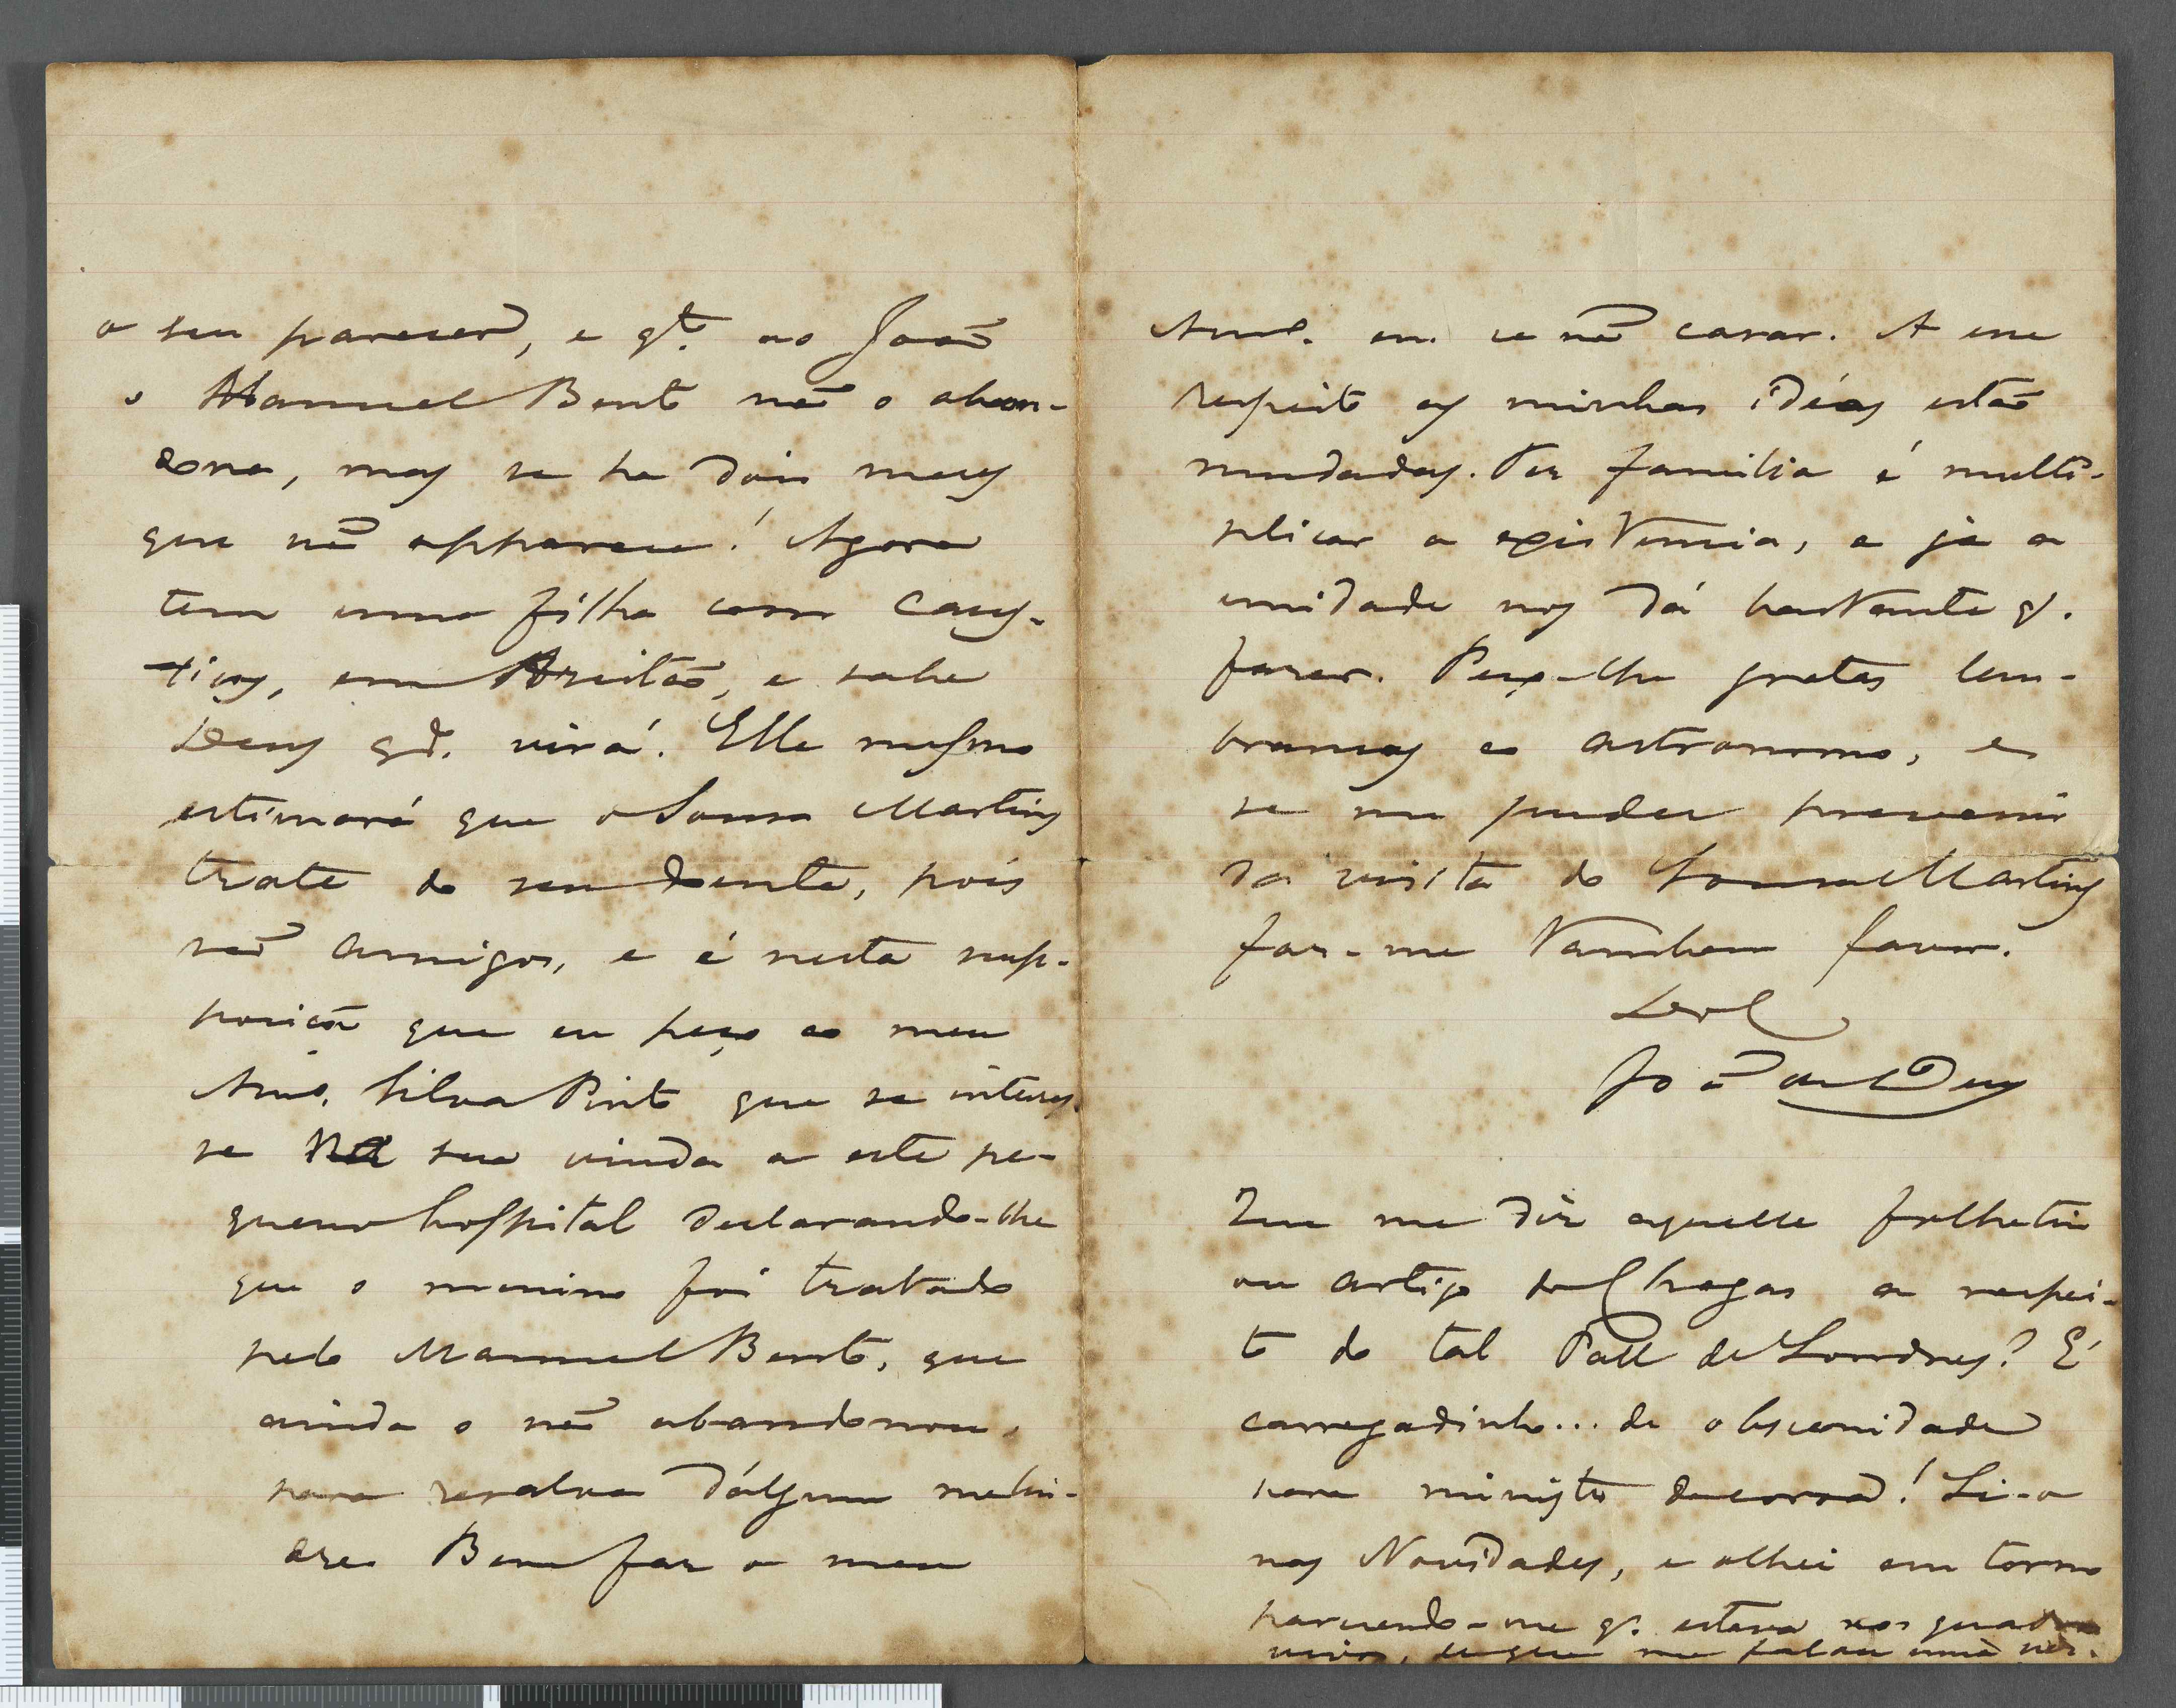 o seu parecer, e q.to ao João
o Manuel Bento não o aban-
dona, mas se ha dois mezes
que não apparece! Agora
tem uma filha com caus-
ticos, em Azeitão, e sabe
Deus q.do virá. Elle mesmo
estimará que o Sousa Martins
trate do seu doente, pois
são amigos, e é nesta sup-
posição que eu peço ao meu
Amo. Silva Pinto que se interes-
se na sua vinda a este pe-
queno hospital declarando-lhe
que o menino foi tratado
pelo Manuel Bento, que
ainda o não abandonou,
para resalva d'algum melin-
dre. Bem faz o meu
Amo. em se não casar. A esse
respeito as minhas idéas estão
mudadas. Ter familia é multi-
plicar a existencia, e já a
unidade nos dá bastante q.
fazer. Peço-lhe gratas lem-
branças ao astronomo, e
se me puder prevenir
da visita do Sousa Martins
faz-me tambem favor.
João de Deus
Que me diz aquelle folhetim
ou artigo do Chagas a respei-
to do tal Pall de Londres? É
carregadinho... de obscenidade
para ministro da coroa! Li-o
nas Novidades, e olhei em torno
parecendo-me q. estava nos quatro
me falou uma vez.